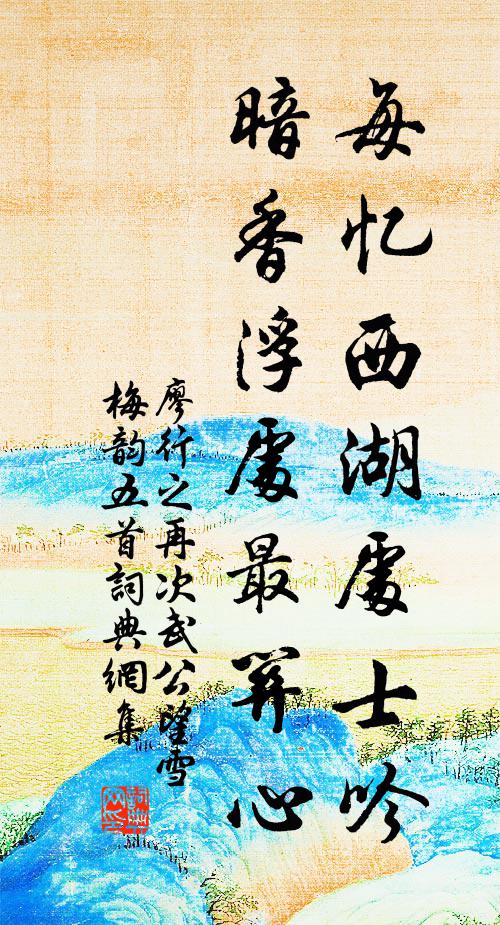 每忆西湖處士吟
暗香浮處最關心
廖行之再次武公望雪
梅韵五首詞典網集